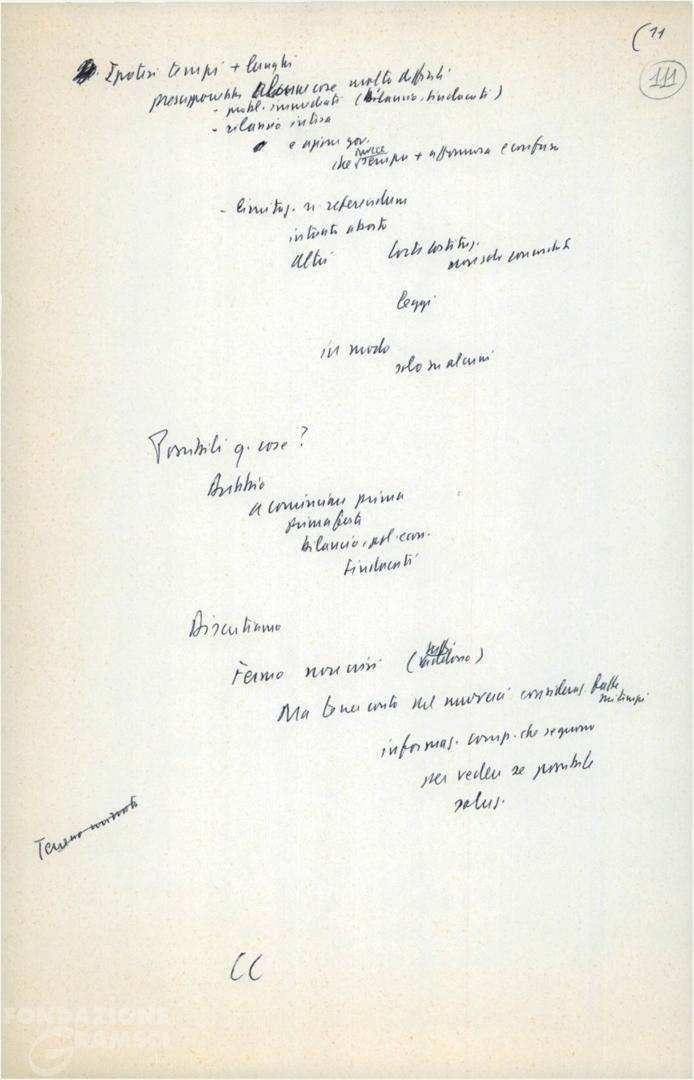 ( 11
111
Ipotesi tempi + lunghi
presupporrebbe alcune cose molto difficili
- probl. immediati (bilancio, sindacati)
- rilancio intesa
e azione gov.
invece
che tempi + affannosa e confusa
- limitaz. n. referendum
intanto aborto
altri
Corte costituz.
non solo
leggi
in modo
solo su alcuni
Possibili q. cose?
Dubbio
a cominciare prima
prima festa
bilancio, pol. econ.
sindacati
Discutiamo
Fermo no
Ma tener conto nel muoverci consideraz. fatte
sui tempi
informaz. comp. che seguono
per vedere se possibile
soluz.
Terreno minato
CC
FONDAZIONE
GRAMSCI